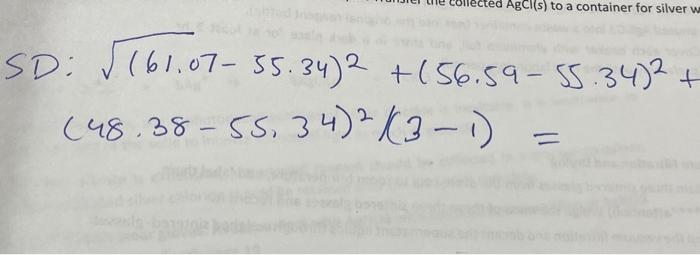 the collected AgCl(s) to a container for silver w
SD: √(61.07 - 55.34)² + (56.59 - 55.34)² +
(48.38 - 55.34)² / (3 - 1) =